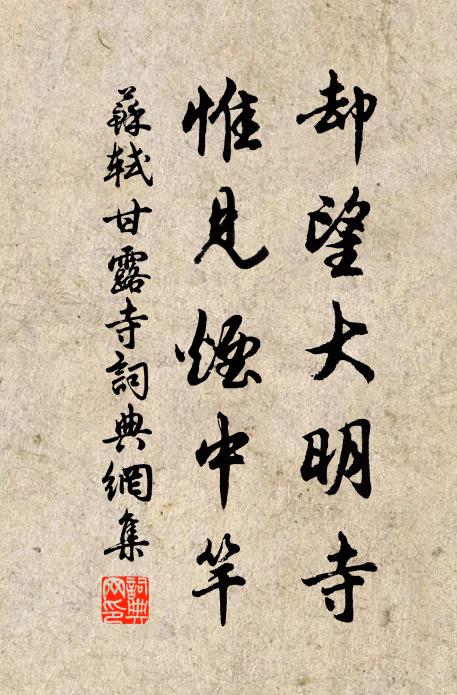 却望大明寺
惟見煙中竿
蘇軾甘露寺詞典網集
詞典網印